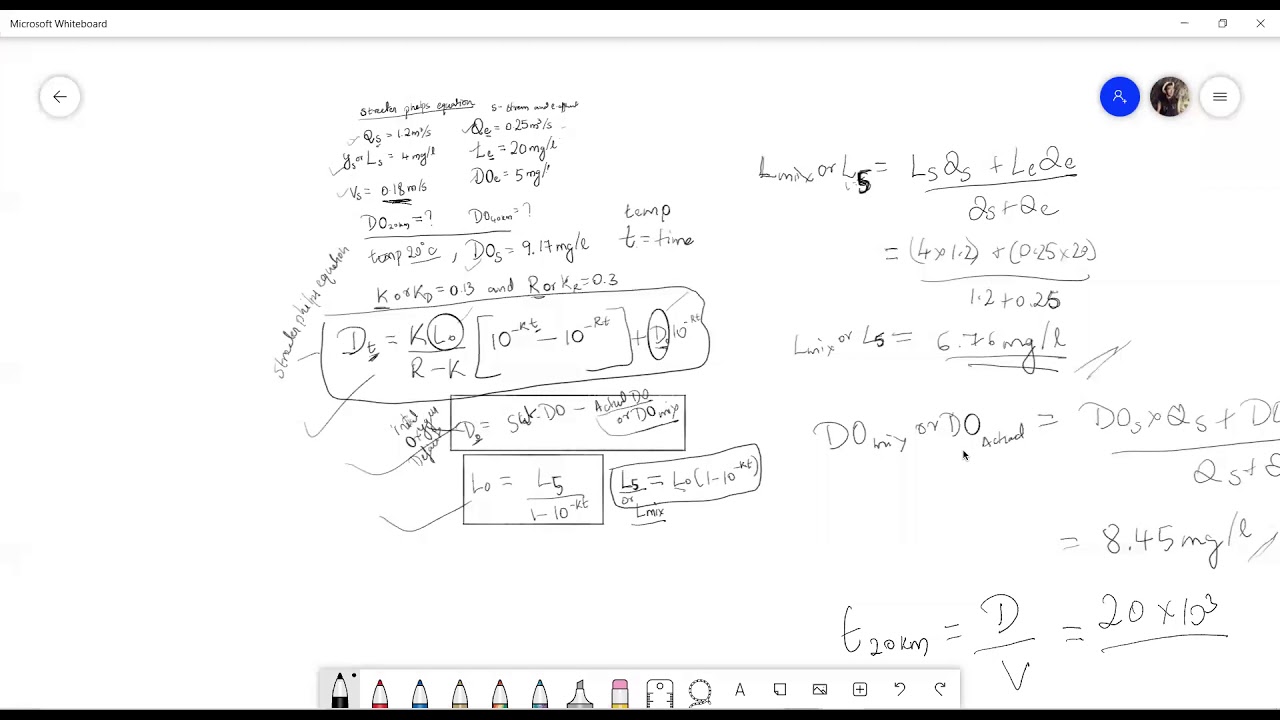 Microsoft Whiteboard
Streeter phelps equation S - stream and e-effluent
Qs = 1.2m³/s Qe = 0.25m³/s
ys or Ls = 4 mg/l Le = 20 mg/l
Vs = 0.18 m/s DOe = 5 mg/l
DO20km = ? DO40km = ?
temp 20°c, DOs = 9.17 mg/l
temp
t = time
K or KD = 0.13 and R or KR = 0.3
Streeter phelps equation
Dt = KLo / R - K [10^-Kt - 10^-Rt] + Do 10^-Rt
Initial Oxygen
Do = Sat.DO - Actual DO or DOmix
Lo = L5 / 1 - 10^-Kt
L5 or Lmix = Lo (1 - 10^-Kt)
Lmix or L5 = LsQs + LeQe / Qs + Qe
= (4 x 1.2) + (0.25 x 20) / 1.2 + 0.25
Lmix or L5 = 6.76 mg/l
DOmix or DO Actual = DOs x Qs + DO / Qs + Q
= 8.45 mg/l
t20km = D / V = 20 x 10³
A